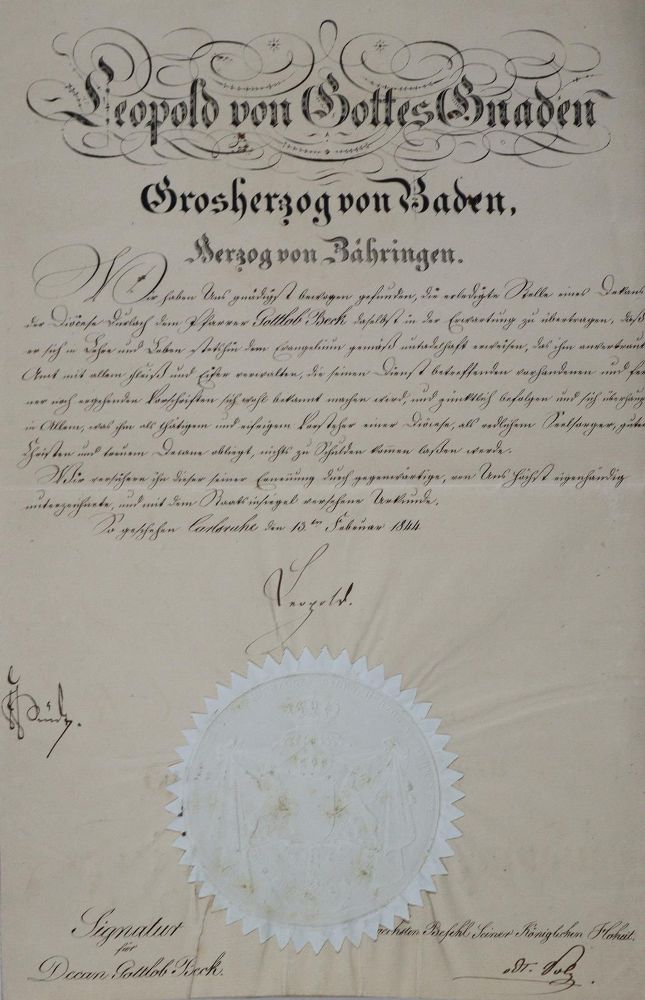 Leopold von Gottes Gnaden
Grosherzog von Baden,
Herzog von Zähringen.
Wir haben Uns gnädigst bewogen gefunden, die erledigte Stelle eines Dekans
der Diöcese Durlach dem Pfarrer Gottlob Beck daselbst in der Erwartung zu übertragen, daß
er sich in Lehre und Leben stetshin dem Evangelium gemäß untadelhaft erweisen, das ihm anvertraute
Amt mit allem Fleiß und Eifer verwalten, die seinen Dienst betreffenden vorhandenen und fer
ner noch ergehenden Vorschriften sich wohl bekannt machen werd und pünktlich befolgen und sich überhaupt
in Allem, was ihm als thätigem und eifrigem Vorsteher einer Diöcese, als redlichem Seelsorger, gutem
Christen und treuem Decane obliegt, nichts zu Schulden kommen laßen werde.
Wir versichern ihn dieser seiner Ernennung durch gegenwärtige, von Uns höchst eigenhändig
unterzeichnete, und mit dem Staatsinsiegel versehene Urkunde.
So geschehen Carlsruhe den 13.ten Februar 1844
Leopold.
Signatur
für
Decan Gottlob Beck.
höchsten Befehl Seiner Königlichen Hoheit.